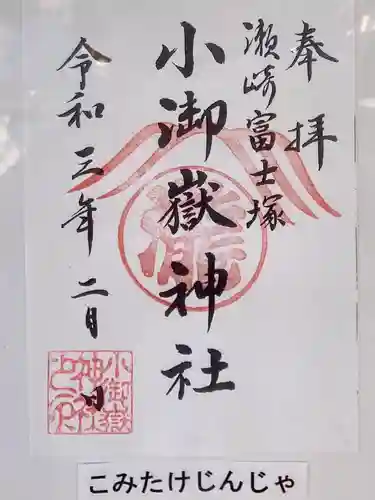 奉拝
瀬崎富士塚
小御嶽神社
令和三年二月
日
小御嶽
神社
こみたけじんじゃ